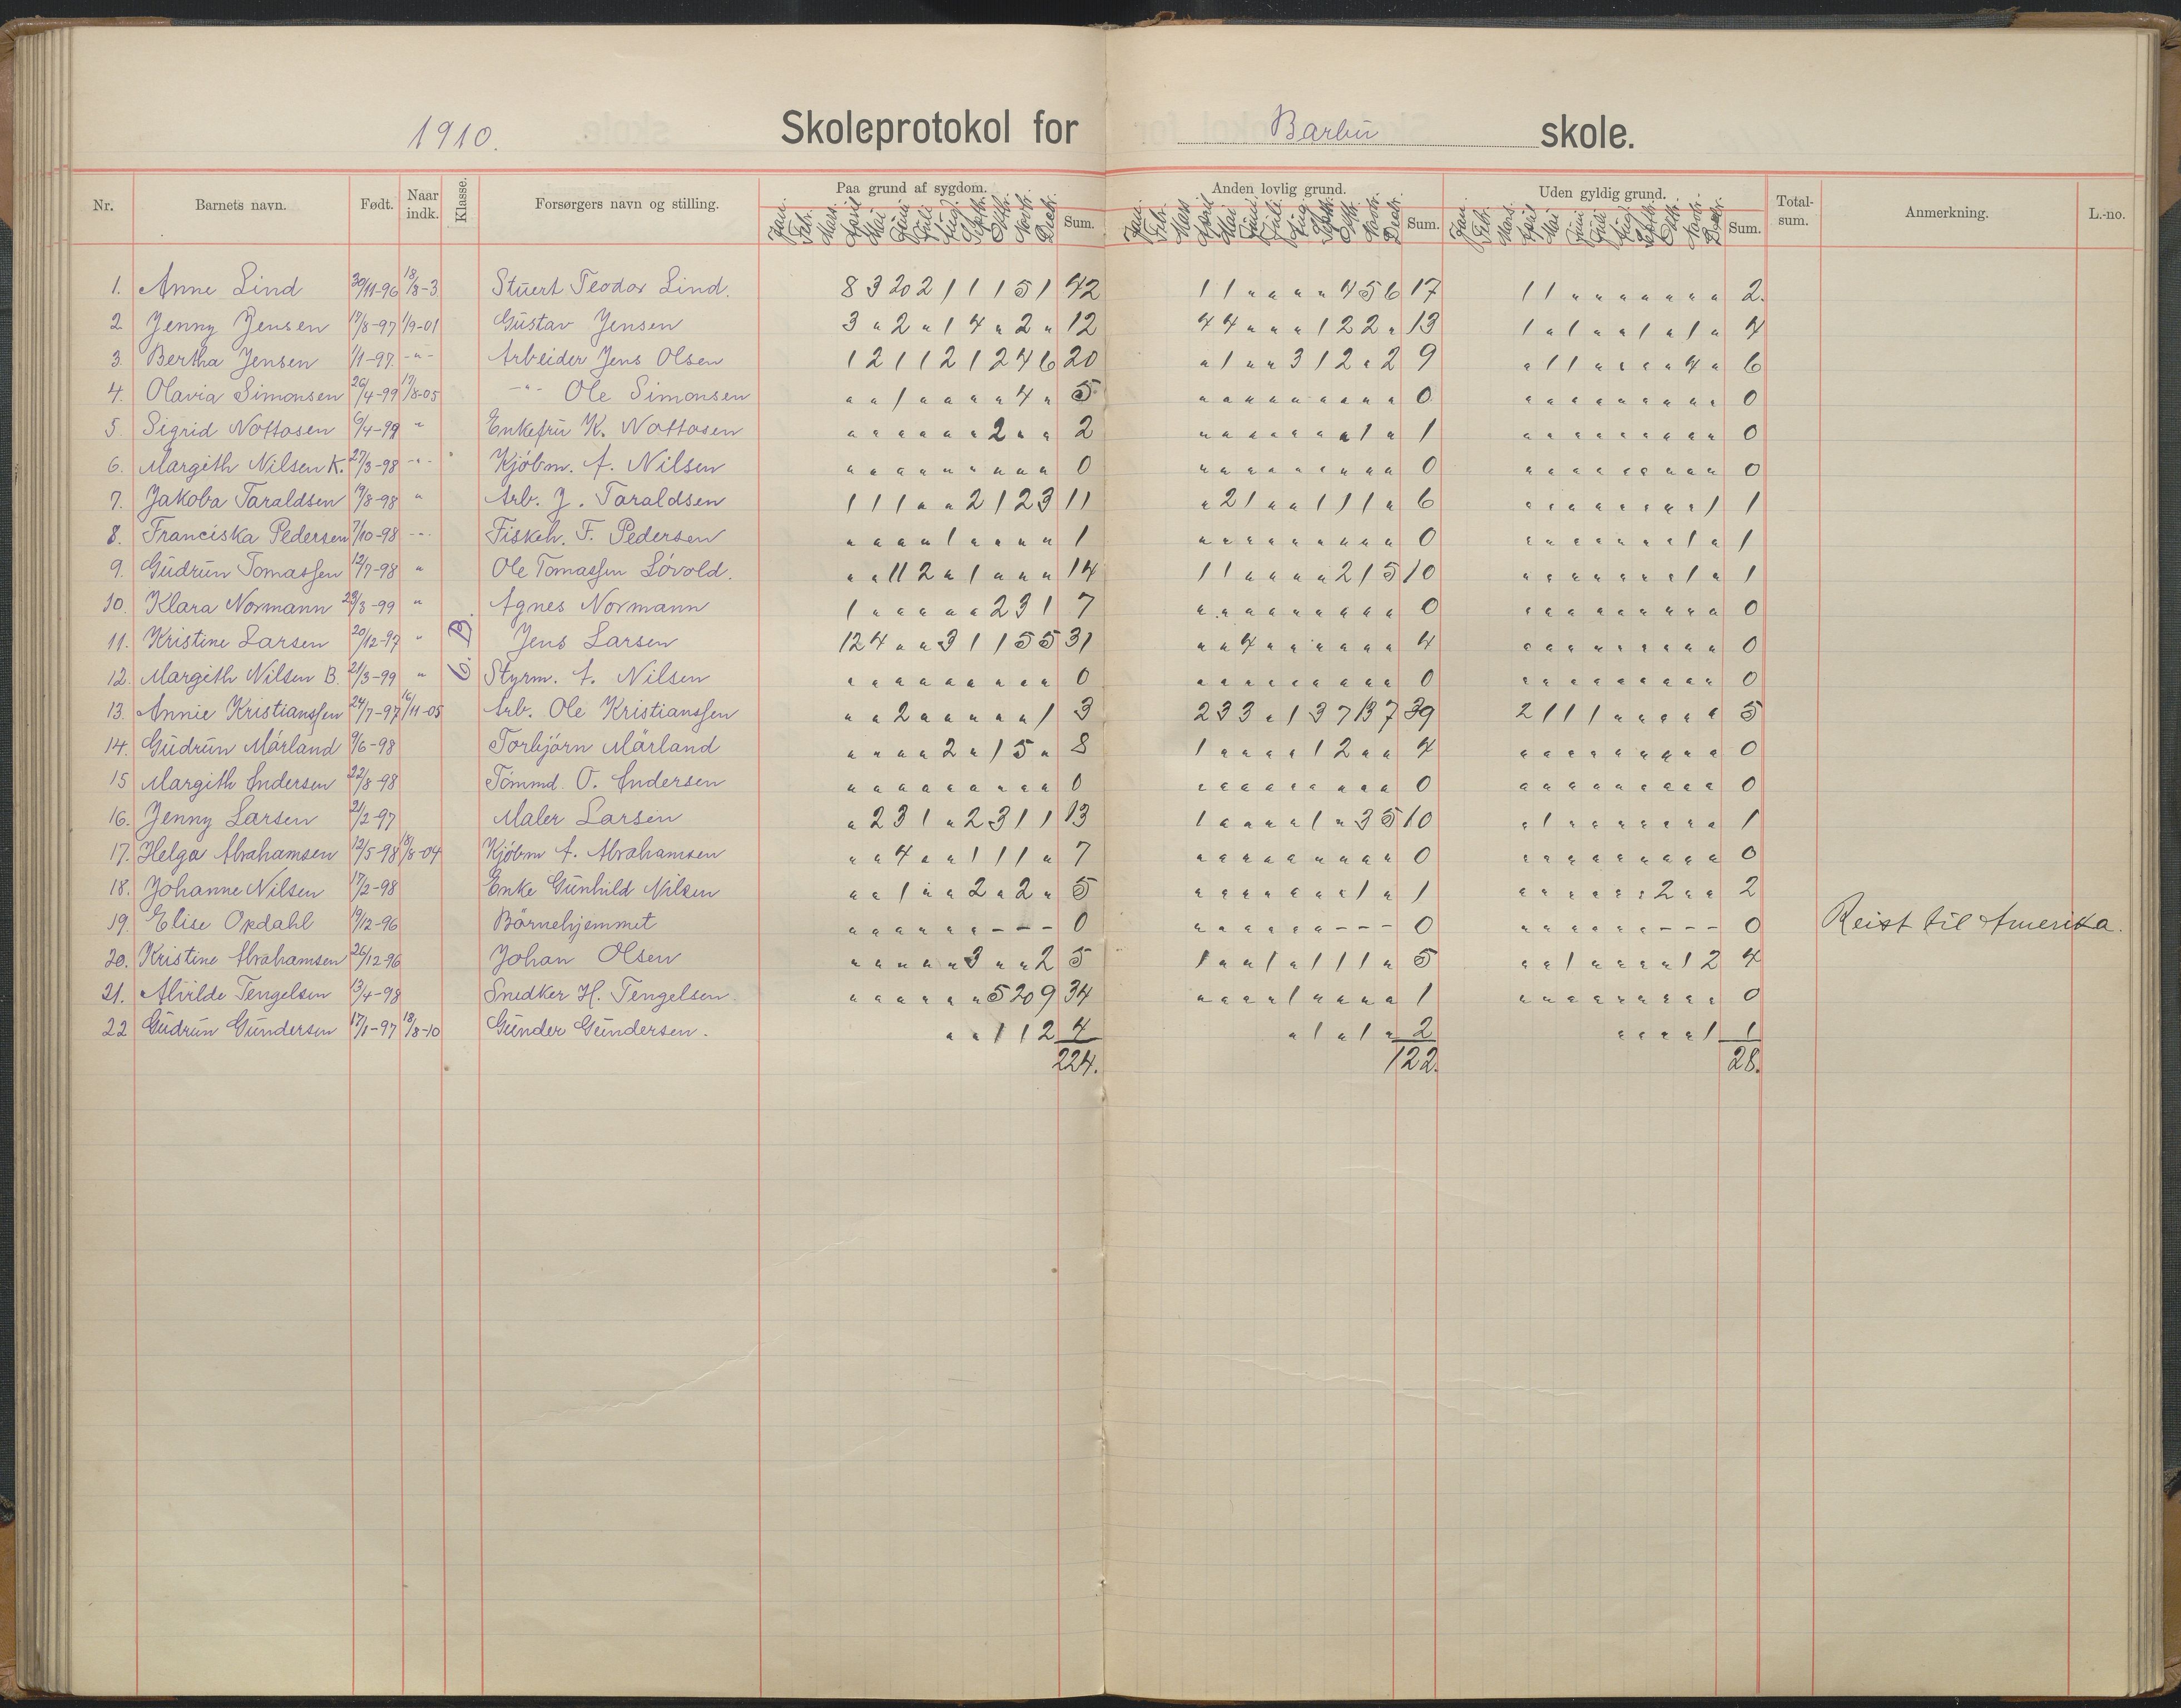 1910. Skoleprotokol for Barbu skole.
Nr. Barnets navn. Født. Naar indk. Klasse. Forsørgers navn og stilling. Paa grund af sygdom. Sum. Anden lovlig grund. Sum. Uden gyldig grund. Sum. Total-sum. Anmerkning. L.-no.
Jan. Febr. Mars April Mai Juni Juli Aug. Septbr. Oktbr. Novbr. Decbr. Jan. Febr. Mars April Mai Juni Juli Aug. Septbr. Oktbr. Novbr. Decbr. Jan. Febr. Mars April Mai Juni Juli Aug. Septbr. Oktbr. Novbr. Decbr.
1. Anne Lind 30/11-96 18/8-3 Stuert Teodor Lind. 8 3 20 2 1 1 1 5 1 42 1 1 " " " " 4 5 6 17 1 1 " " " " " " " 2.
2 Jenny Jensen 17/8-97 1/9-01 Gustav Jensen 3 " 2 " 1 4 " 2 " 12 4 4 " " " 1 2 2 " 13 1 " 1 " " 1 " 1 " 4
3. Bertha Jensen 1/1-97. -"- Arbeider Jens Olsen 1 2 1 1 2 1 2 4 6 20 " 1 " " 3 1 2 " 2 9 " 1 1 " " " " 4 " 6
4. Olavia Simonsen 26/4-99 17/8-05 -"- Ole Simonsen " " 1 " " " " 4 " 5 " " " " " " " " " 0 " " " " " " " " " 0
5. Sigrid Nottosen 6/4-99 " Enkefru K. Nottosen " " " " " " 2 " " 2 " " " " " " " 1 " 1 " " " " " " " " " 0
6. Margith Nilsen K. 27/3-98 -"- Kjöbm. A. Nilsen " " " " " " " " " 0 " " " " " " " " " 0 " " " " " " " " " 0
7. Jakoba Taraldsen 19/8-98 " Arb. J. Taraldsen 1 1 1 " " 2 1 2 3 11 " 2 1 " " 1 1 1 " 6 " " " " " " " " 1 1
8. Franciska Pedersen 7/10-98 -"- Fiskeh. F. Pedersen " " " " 1 " " " " 1 " " " " " " " " " 0 " " " " " " " 1 " 1
9. Gudrun Tomassen 12/7-98 " Ole Tomassen Lövold. " " 11 2 " 1 " " " 14 1 1 " " " " 2 1 5 10 " " " " " " " 1 " 1
10. Klara Normann 29/3-99 " Agnes Normann 1 " " " " " 2 3 1 7 " " " " " " " " " 0 " " " " " " " " " 0
11. Kristine Larsen 20/12-97 " 6. B. Jens Larsen 12 4 " " 3 1 1 5 5 31 " " 4 " " " " " " 4 " " " " " " " " " 0
12. Margith Nilsen B. 21/3-99 " Styrm. A. Nilsen " " " " " " " " " 0 " " " " " " " " " 0 " " " " " " " " " 0
13. Annie Kristianssen 24/7-97 16/11-05 Arb. Ole Kristianssen " " 2 " " " " " 1 3 2 3 3 " 1 3 7 13 7 39 2 1 1 1 " " " " " 5
14. Gudrun Márland 9/6-98 Torbjörn Márland " " " " 2 " 1 5 " 8 1 " " " " 1 2 " " 4 " " " " " " " " " 0
15 Margith Andersen 22/8-98 Tömmd. O. Andersen " " " " " " " " " 0 " " " " " " " " " 0 " " " " " " " " " 0
16. Jenny Larsen 21/2-97 Maler Larsen " 2 3 1 " 2 3 1 1 13 1 " " " " 1 " 3 5 10 " 1 " " " " " " " 1
17. Helga Abrahamsen 12/5-98 18/8-04 Kjöbm A. Abrahamsen " " 4 " " 1 1 1 " 7 " " " " " " " " " 0 " " " " " " " " " 0
18. Johanne Nilsen 17/2-98 Enke Gunhild Nilsen " " 1 " " 2 " 2 " 5 " " " " " " " 1 " 1 " " " " " " 2 " " 2
19. Elise Opdahl 19/12-96 Börnehjemmet " " " " " " - - - 0 " " " " " " - - - 0 " " " " " " - - - 0 Reist til Amerika.
20. Kristine Abrahamsen 26/12-96 Johan Olsen " " " " " 3 " " 2 5 1 " " 1 " 1 1 1 " 5 " " 1 " " " " 1 2 4
21. Alvilde Tengelsen 13/4-98 Snedker H. Tengelsen. " " " " " " 5 20 9 34 " " " " 1 " " " " 1 " " " " " " " " " 0
22 Gudrun Gundersen 17/1-97 18/8-10 Gunder Gundersen. " " 1 1 2 4 " 1 " 1 " 2 " " " " 1 1
224. 122. 28.